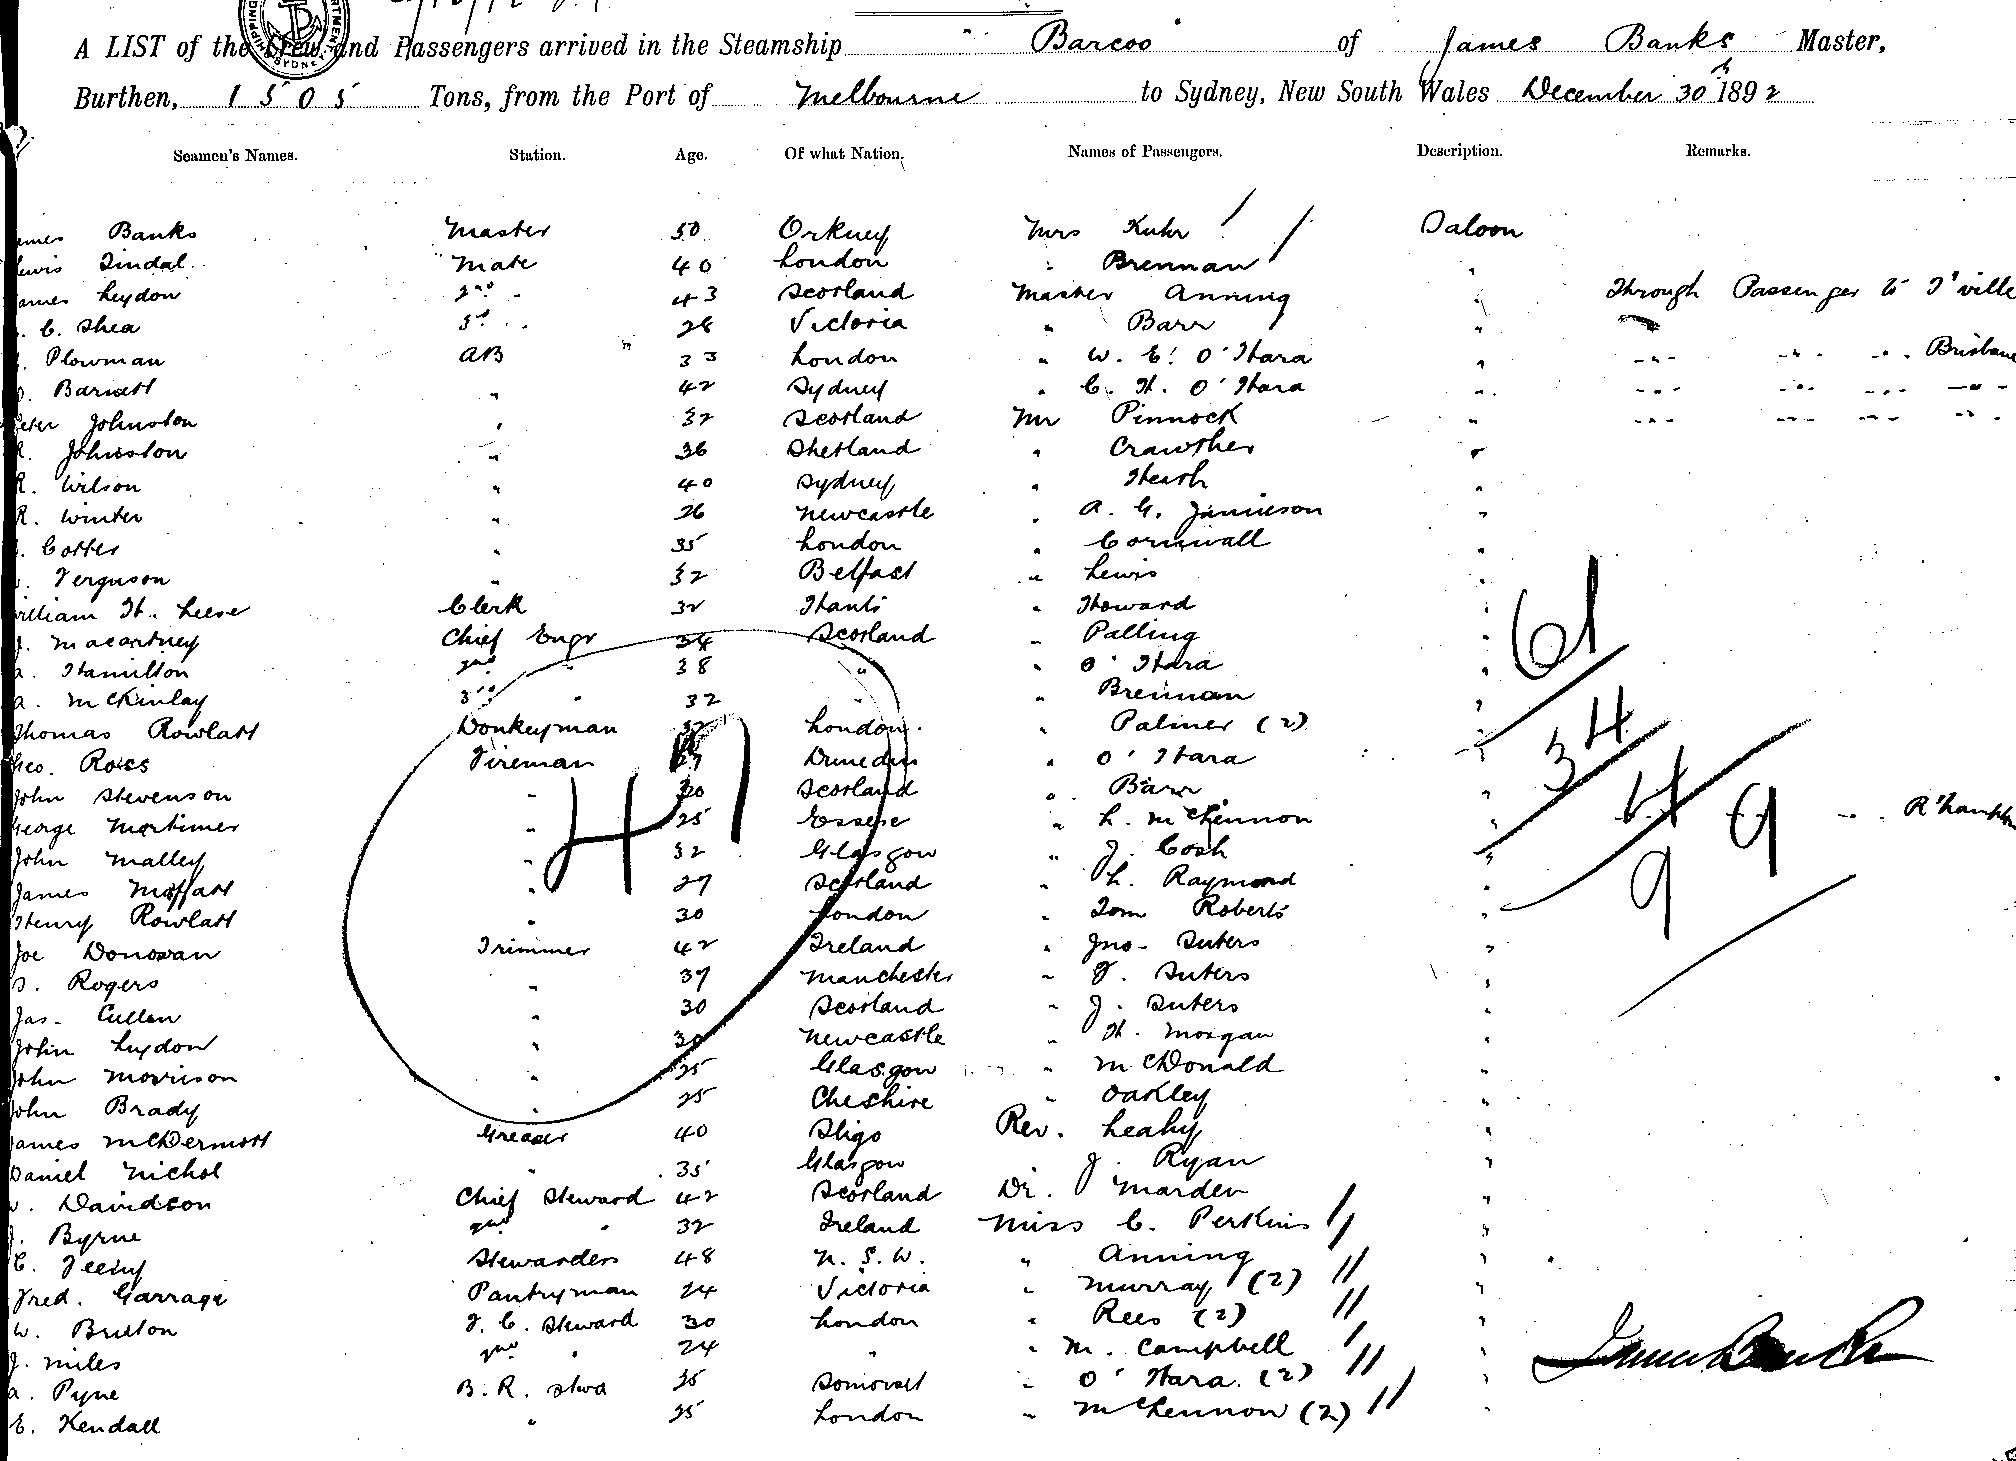 A LIST of the Crew and Passengers arrived in the Steamship "Barcoo" of James Banks Master,
Burthen, 1505 Tons, from the Port of Melbourne to Sydney, New South Wales December 30th 1892
Seamen's Names. Station. Age. Of what Nation. Names of Passengers. Description. Remarks.
ames Banks Master 50 Orkney Mrs Kuhr / Saloon
ewis Tindal Mate 40 London " Brennan / "
ames Leydon 2nd " 43 Scotland Master Anning " Through Passenger to T'ville
. C. Shea 3rd " 28 Victoria " Barr "
. Plowman AB 33 London " W. E. O'Hara " " " " Brisbane
. Barnett " 42 Sydney " C. H. O'Hara " " " " "
eter Johnston " 32 Scotland Mr Pinnock " " " " "
R. Johnston " 36 Shetland " Crawther "
R. Wilson " 40 Sydney " Heath "
R. Winter " 26 Newcastle " A. G. Jamieson "
. Cotter " 35 London " Cornwall "
. Ferguson " 32 Belfast " Lewis "
William H. Leese Clerk 32 Hants " Howard " 61
J. Macartney Chief Engr 34 Scotland " Palling "
A. Hamilton 2nd " 38 " " O'Hara "
A. McKinlay 3rd " 32 " " Brennan "
Thomas Rowlatt Donkeyman 32 London " Palmer (2) " 34
Geo. Ross Fireman Dunedin " O'Hara "
John Stevenson " 30 Scotland " Barr " 4
George Mortimer " 25 Essex " L. McLennon " 9 " R'hampt
John Malley " 32 Glasgow " J. Cosh "
James Moffatt " 27 Scotland " L. Raymond " 9
Henry Rowlatt " 30 London " Tom Roberts "
Joe Donovan Trimmer 42 Ireland " Jno. Suters "
S. Rogers " 37 Manchester " F. Suters "
Jas. Cullen " 30 Scotland " J. Suters "
John Leydon " 30 Newcastle " H. Morgan "
John Morrison " 25 Glasgow " McDonald "
John Brady " 25 Cheshire " Oakley "
James McDermott Greaser 40 Sligo Rev. Leahy "
Daniel Nichol " 35 Glasgow " J. Ryan "
. Davidson Chief Steward 42 Scotland Dr. Marden "
J. Byrne 2nd " 32 Ireland Miss C. Perkins / "
C. Feeny Stewardess 48 N. S. W. " Anning / "
Fred. Garrage Pantryman 24 Victoria " Murray (2) // "
W. Bruton F. C. Steward 30 London " Rees (2) // "
J. Miles 2nd " 24 " " M. Campbell / " James Banks
A. Pyne B. R. Stwd 35 Somerset " O'Hara (2) // "
E. Kendall " 25 London " McLennon (2) // "
41